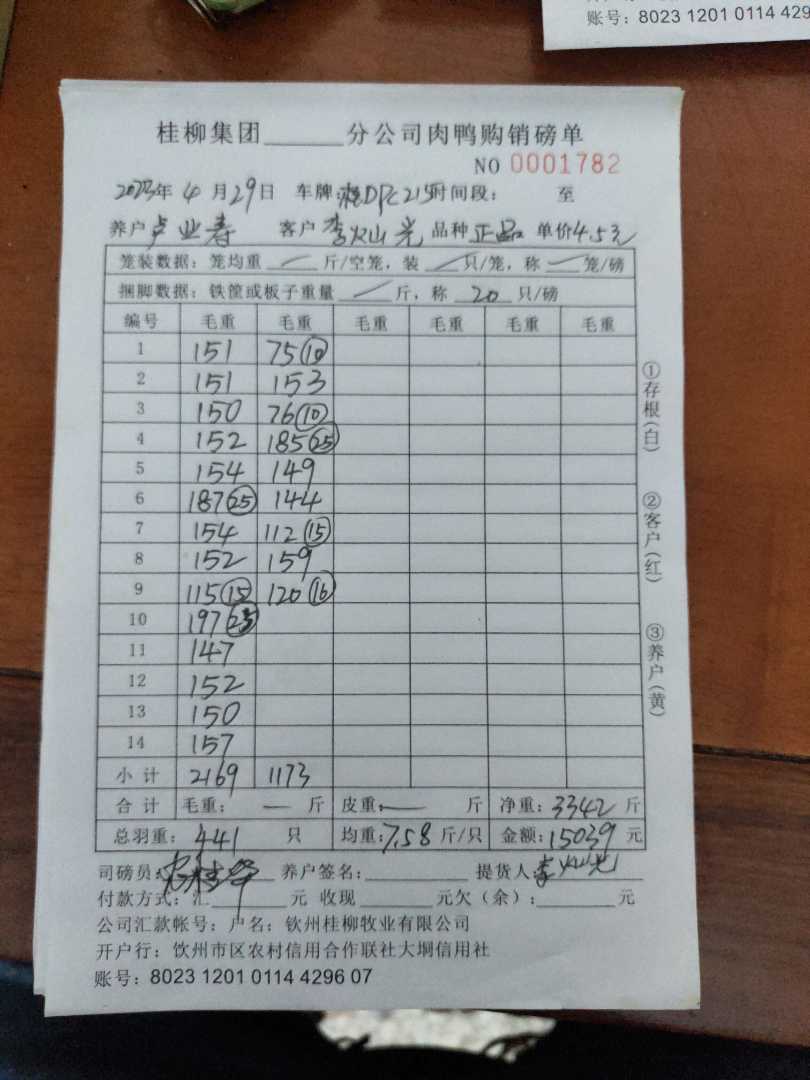 账号：8023 1201 0114 429
桂柳集团______分公司肉鸭购销磅单
NO 0001782
2023年4月29日 车牌： 215 时间段： 至
养户 卢业寿 客户 李火山光 品种 正品 单价4.5元
笼装数据：笼均重 / 斤/空笼，装 / 只/笼，称 — 笼/磅
捆脚数据：铁筐或板子重量 / 斤，称 20 只/磅
编号 毛重 毛重 毛重 毛重 毛重 毛重
1 151 75⑩
2 151 153
3 150 76⑩
4 152 185㉕
5 154 149
6 187㉕ 144
7 154 112⑮
8 152 159
9 115⑮ 120⑯
10 197
11 147
12 152
13 150
14 157
小计 2169 1173
合计 毛重： — 斤 皮重： — 斤 净重：3342斤
总羽重：441 只 均重：7.58斤/只 金额：15039元
司磅员： 养户签名：______ 提货人：李火山光
付款方式：汇______元 收现______元欠（余）：______元
公司汇款帐号：户名：钦州桂柳牧业有限公司
开户行：饮州市区农村信用合作联社大垌信用社
账号：8023 1201 0114 4296 07
①存根（白）
②客户（红）
③养户（黄）